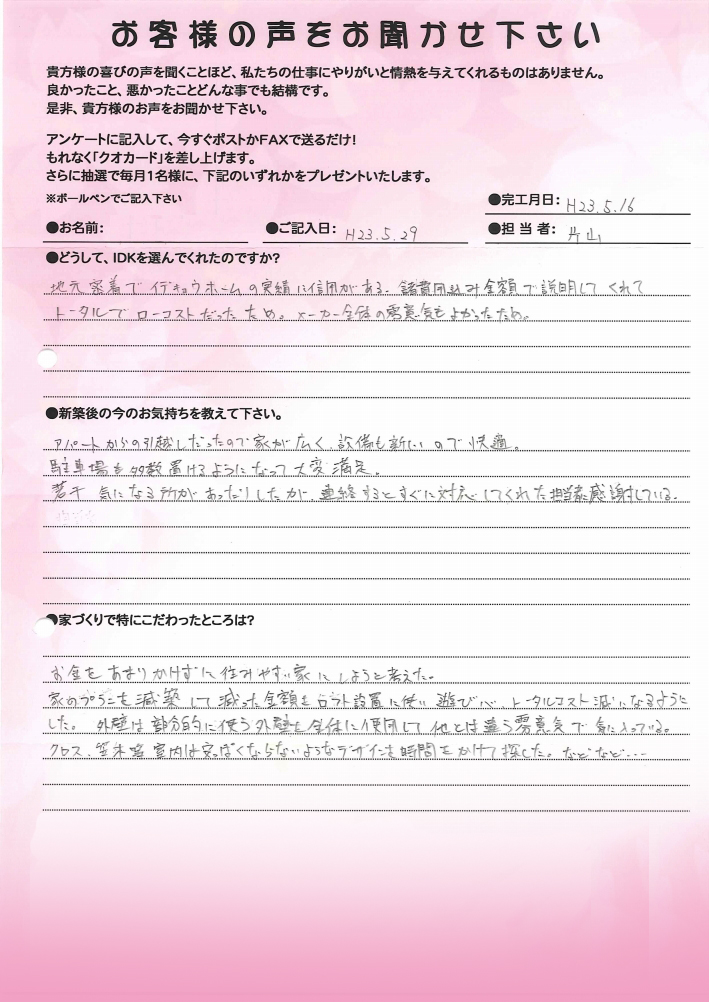 お客様の声をお聞かせ下さい
貴方様の喜びの声を聞くことほど、私たちの仕事にやりがいと情熱を与えてくれるものはありません。
良かったこと、悪かったことどんな事でも結構です。
是非、貴方様のお声をお聞かせ下さい。
アンケートに記入して、今すぐポストかFAXで送るだけ!
もれなく「クオカード」を差し上げます。
さらに抽選で毎月1名様に、下記のいずれかをプレゼントいたします。
※ボールペンでご記入下さい
●完工月日: H23.5.16
●お名前: ●ご記入日: H23.5.29 ●担当者: 片山
●どうして、IDKを選んでくれたのですか?
地元密着でイデキョウホームの実績に信用がある。諸費用込み金額で説明してくれて
トータルでローコストだったため。メーカー全体の雰意気もよかったため。
●新築後の今のお気持ちを教えて下さい。
アパートからの引越しだったので家が広く、設備も新しいので快適。
駐車場も多数置けるようになって大変満足。
若干気になる所があったりしたが、連絡するとすぐに対応してくれた担当者に感謝している。
●家づくりで特にこだわったところは?
お金をあまりかけずに住みやすい家にしようと考えた。
家のプランを減築して減った金額を設置に使い遊び心、トータルコスト減になるように
した。外壁は部分的に使う外壁を全体に使用して他とは違う雰意気で気に入っている。
クロス、室内は安っぽくならないようなデザインを時間をかけて探した。などなど・・・